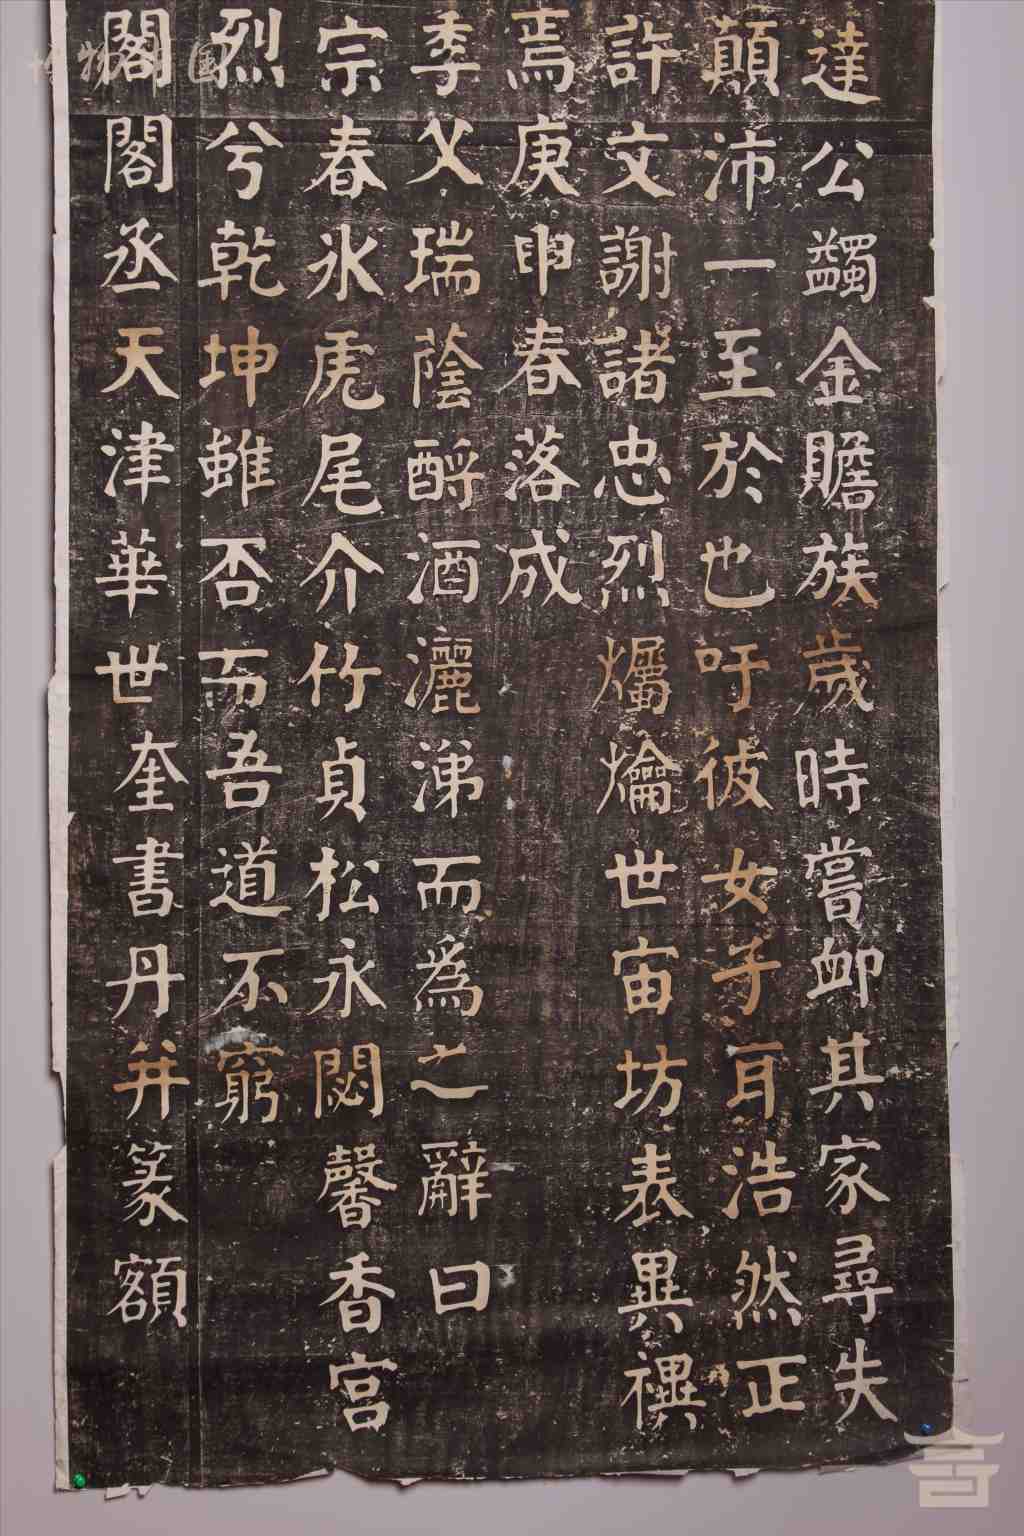 達公蠲金贍族歲時嘗卹其家尋失
顛沛一至於也吁彼女子耳浩然正
許文謝諸忠烈爥爚世宙坊表異禩
焉庚申春落成
季父瑞蔭酹酒灑涕而為之辭曰
宗春冰虎尾介竹貞松永閟馨香宮
烈兮乾坤雖否而吾道不窮
閣閣丞天津華世奎書丹并篆額
博物中国